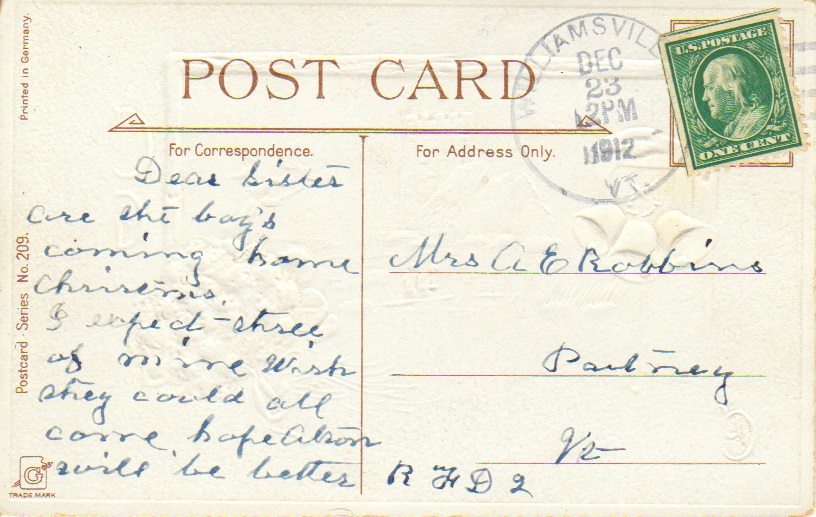 Printed in Germany.
POST CARD
WILLIAMSVILLE
DEC
23
12PM
1912
VT.
U.S. POSTAGE
ONE CENT
For Correspondence.
For Address Only.
Dear Sister
are the boy's
coming home
Chrismis.
I expect three
of mine Wish
they could all
come hope Alson
will be better
Mrs A E Robbins
Putney
Vt
R F D 2
Postcard - Series No. 209.
G
TRADE MARK